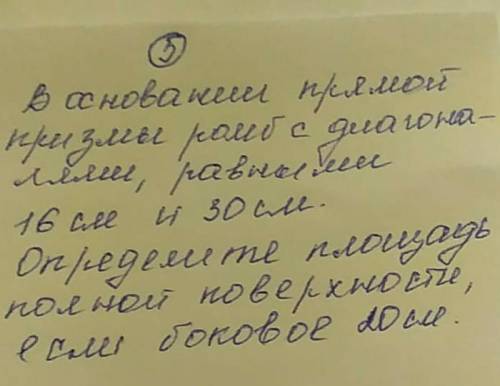 5
В основании прямой
призмы ромб с диагона-
лями, равными
16 см и 30 см.
Определите площадь
полной поверхности,
если боковое 20 см.